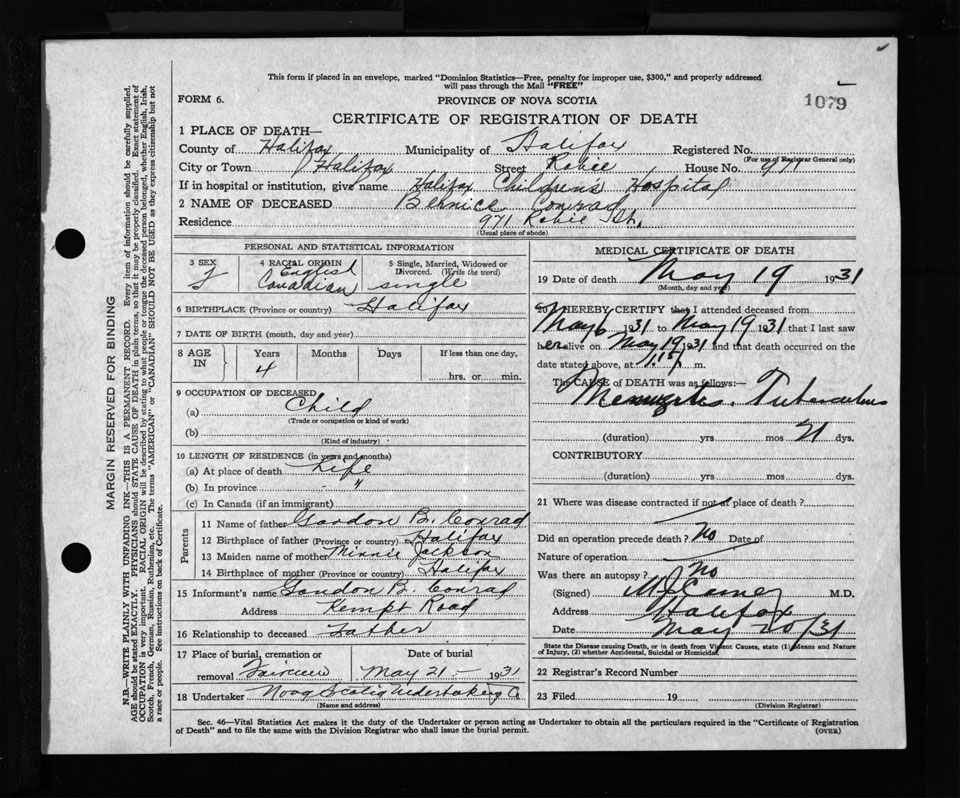 This form if placed in an envelope, marked "Dominion Statistics—Free, penalty for improper use, $300," and properly addressed
will pass through the Mail "FREE"
FORM 6.
PROVINCE OF NOVA SCOTIA
1079
CERTIFICATE OF REGISTRATION OF DEATH
1 PLACE OF DEATH—
County of Halifax Municipality of Halifax Registered No.
(For use of Registrar General only)
City or Town Halifax Street Robie House No. 971
If in hospital or institution, give name Halifax Childrens Hospital
2 NAME OF DECEASED Bernice Conrad
Residence 971 Robie St.
(Usual place of abode)
PERSONAL AND STATISTICAL INFORMATION
3 SEX
f
4 RACIAL ORIGIN
English
Canadian
5 Single, Married, Widowed or
Divorced. (Write the word)
single
6 BIRTHPLACE (Province or country) Halifax
7 DATE OF BIRTH (month, day and year)
8 AGE IN
Years Months Days If less than one day,
4
hrs. or min.
9 OCCUPATION OF DECEASED
(a) Child
(Trade or occupation or kind of work)
(b)
(Kind of industry)
10 LENGTH OF RESIDENCE (in years and months)
(a) At place of death Life
(b) In province "
(c) In Canada (if an immigrant)
Parents
11 Name of father Gordon B. Conrad
12 Birthplace of father (Province or country) Halifax
13 Maiden name of mother Minnie Jackson
14 Birthplace of mother (Province or country) Halifax
15 Informant's name Gordon B. Conrad
Address Kempt Road
16 Relationship to deceased Father
17 Place of burial, cremation or
removal Fairview
Date of burial
May 21 — 1931
18 Undertaker Nova Scotia Undertaking Co
(Name and address)
MEDICAL CERTIFICATE OF DEATH
19 Date of death May 19 1931
(Month, day and year)
20 I HEREBY CERTIFY that I attended deceased from
May 6 1931 to May 19 1931 that I last saw
her alive on May 19 1931 and that death occurred on the
date stated above, at m.
The CAUSE of DEATH was as follows:—
Meningitis. Tuberculous
(duration) yrs mos 21 dys.
CONTRIBUTORY
(duration) yrs mos dys.
21 Where was disease contracted if not at place of death?
Did an operation precede death? No Date of
Nature of operation
Was there an autopsy? No
(Signed) M.D.
Address Halifax
Date May 20/31
State the Disease causing Death, or in death from Violent Causes, state (1) Means and Nature
of Injury, (2) whether Accidental, Suicidal or Homicidal.
22 Registrar's Record Number
23 Filed 19
(Division Registrar)
Sec. 46—Vital Statistics Act makes it the duty of the Undertaker or person acting as Undertaker to obtain all the particulars required in the "Certificate of Registration
of Death" and to file the same with the Division Registrar who shall issue the burial permit.
(OVER)
MARGIN RESERVED FOR BINDING
N.B.—WRITE PLAINLY WITH UNFADING INK—THIS IS A PERMANENT RECORD. Every item of information should be carefully supplied.
AGE should be stated EXACTLY. PHYSICIANS should STATE CAUSE OF DEATH in plain terms, so that it may be properly classified. Exact statement of
OCCUPATION is very important. RACIAL ORIGIN will be described by stating to what people or tongue the deceased person belonged, whether English, Irish,
Scotch, French, German, Russian, Ruthenian, etc. The terms "AMERICAN" or "CANADIAN" SHOULD NOT BE USED as they express citizenship but not
a race or people. See instructions on back of Certificate.